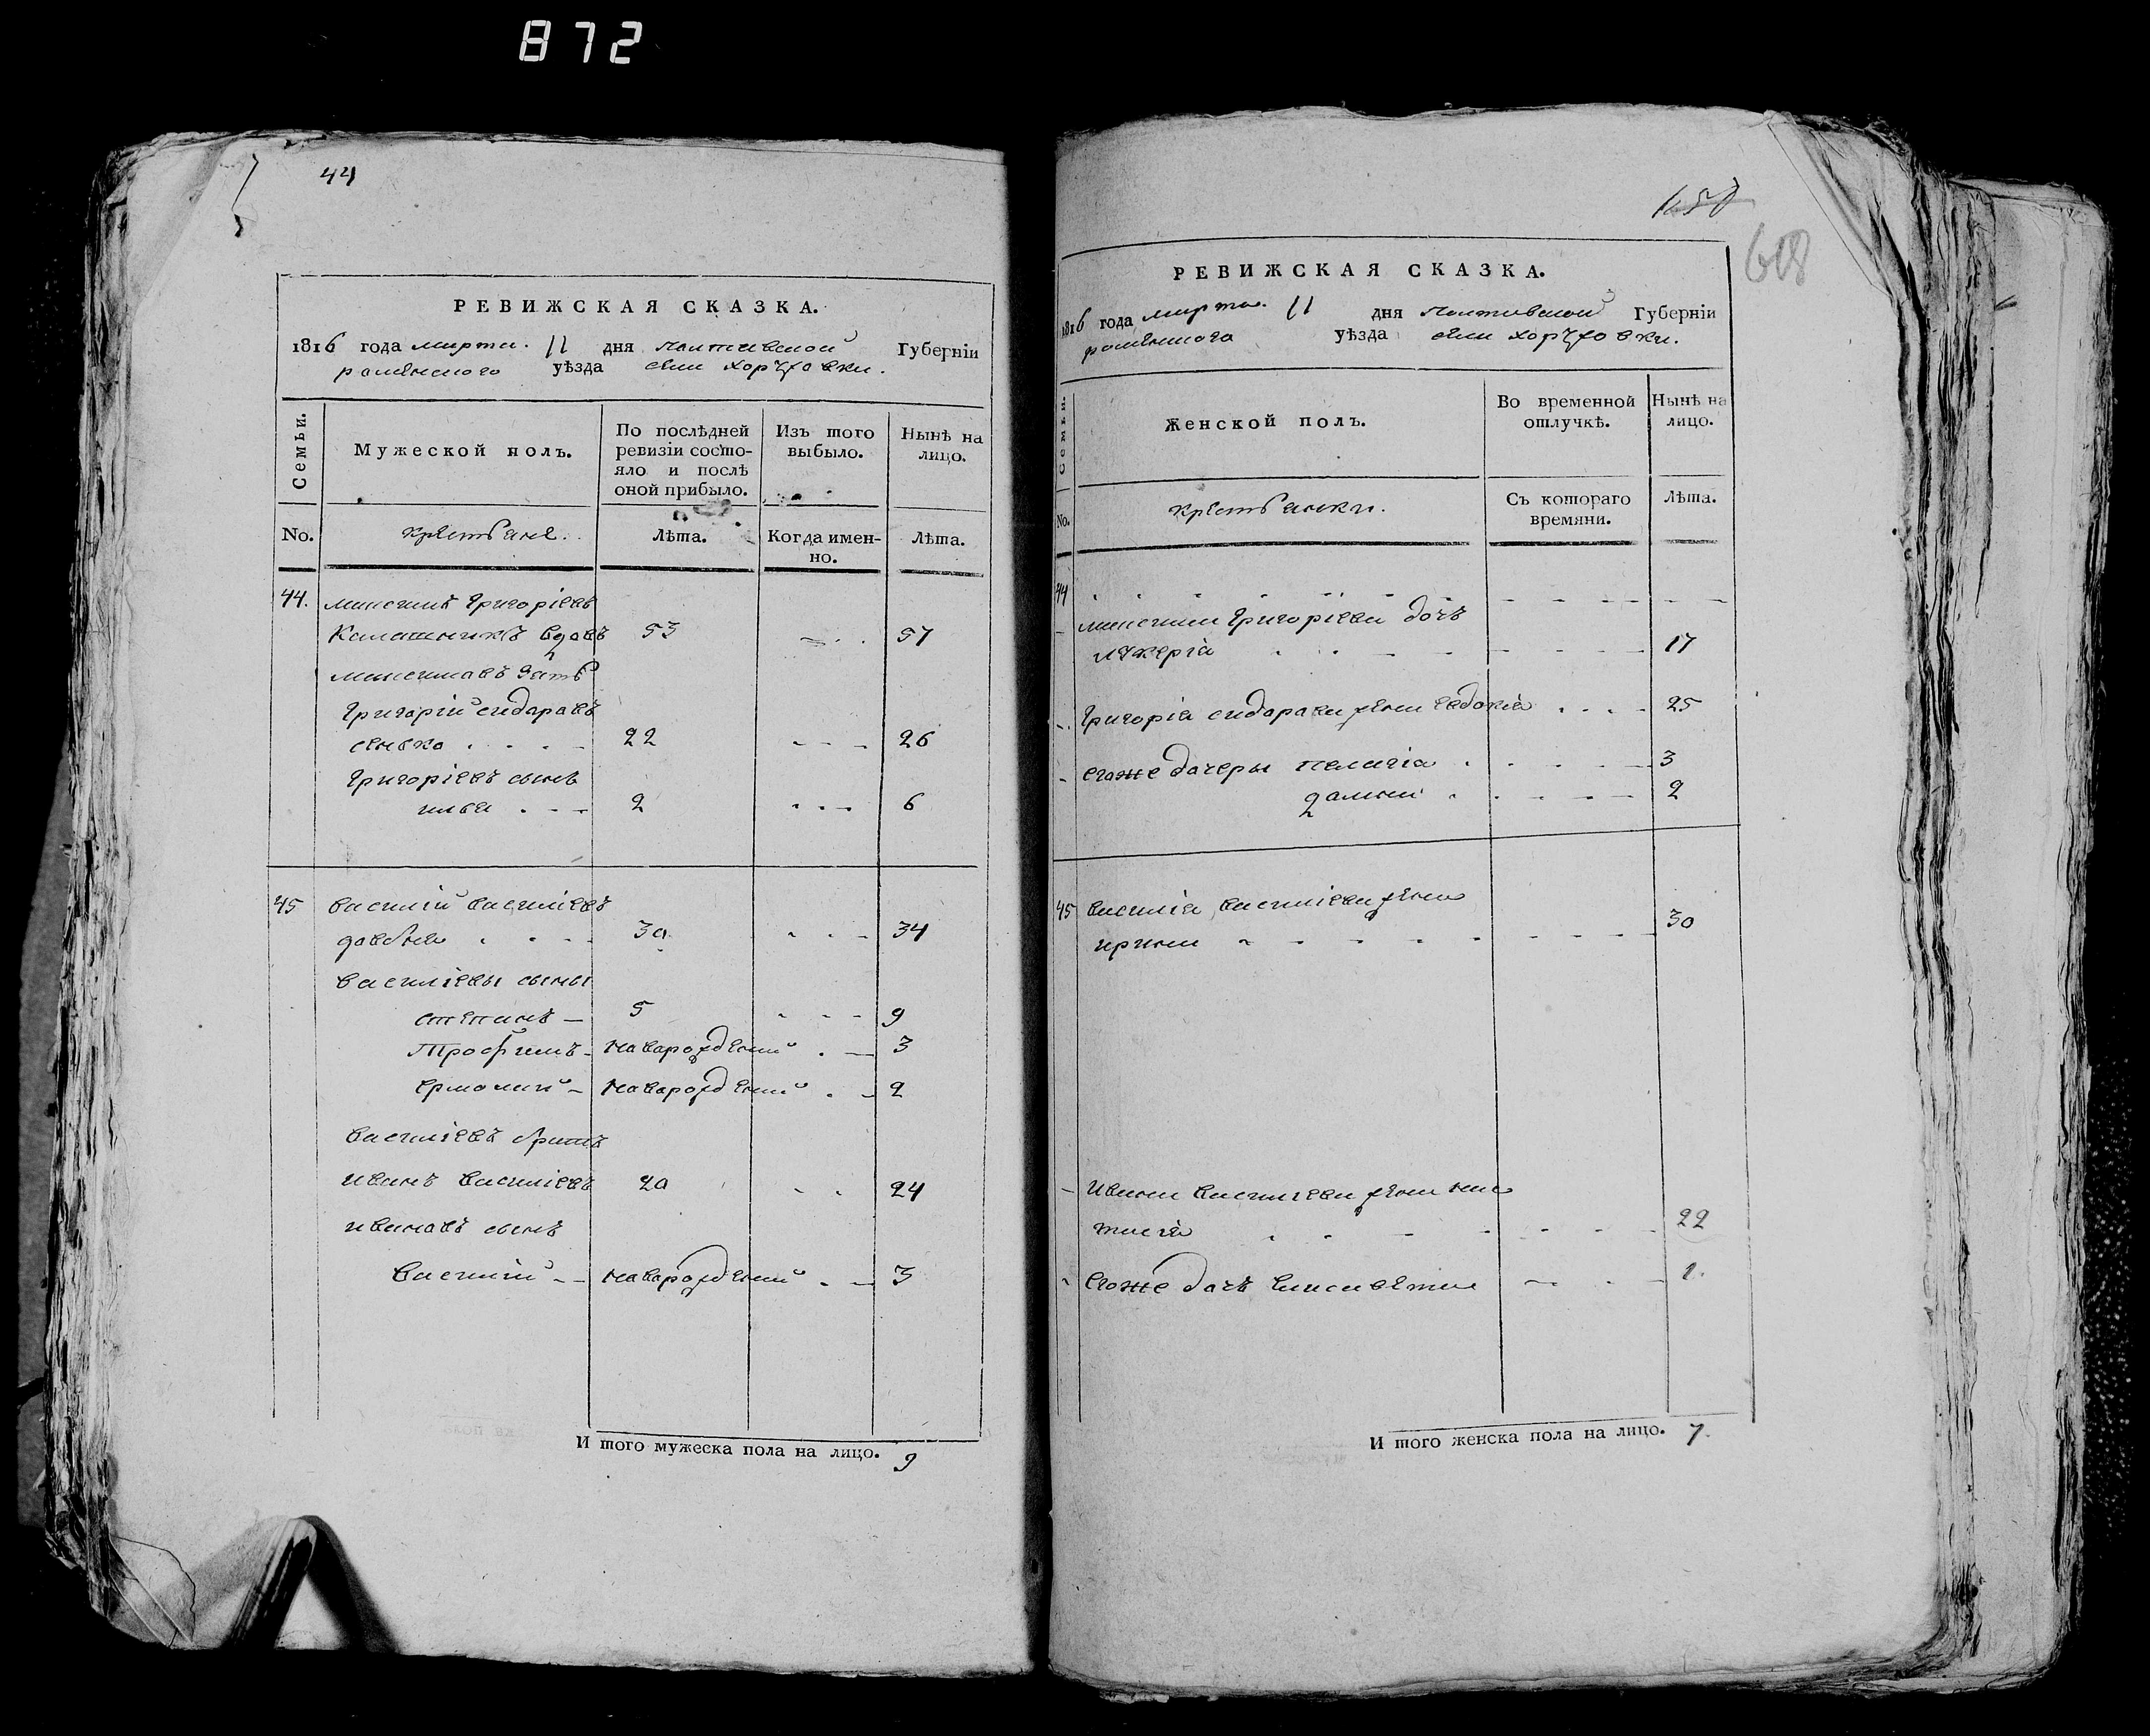 872
44
РЕВИЖСКАЯ СКАЗКА.
1816 года марта. 11 дня полтавской Губерніи
роменского уѣзда села хоружовки.
Семьи. Мужеской полъ. По послѣдней ревизіи состояло и послѣ оной прибыло. Изъ того выбыло. Нынѣ на лицо.
No. крестьяне. Лѣта. Когда именно. Лѣта.
44. Григоріевъ
Калашникъ вдовъ 53 57
зать
Григорій сидоровъ
сенько 22 26
Григоріевъ сынъ
илья 2 6
45 василій василіевъ
30 34
василіевы сыны
степанъ 5 9
Трофимъ новорожденый 3
ермолай новорожденый 2
василіевъ братъ
иванъ василіевъ 20 24
ивановъ сынъ
василій новорожденый 3
И того мужеска пола на лицо. 9
608
РЕВИЖСКАЯ СКАЗКА.
1816 года марта. 11 дня полтавской Губерніи
роменского уѣзда села хоружовки.
Семьи. Женской полъ. Во временной отлучкѣ. Нынѣ на лицо.
No. крестьянки. Съ котораго времяни. Лѣта.
44
Григоріева дочъ
лукеріа 17
Григоріа сидорова жена евдокіа 25
егоже дочеры пелагіа 3
домна 2
45 василіа василіева жена
ирина 30
Ивана василиева жена нас
тасіа 22
Егоже дочъ елисавета 1.
И того женска пола на лицо. 7.